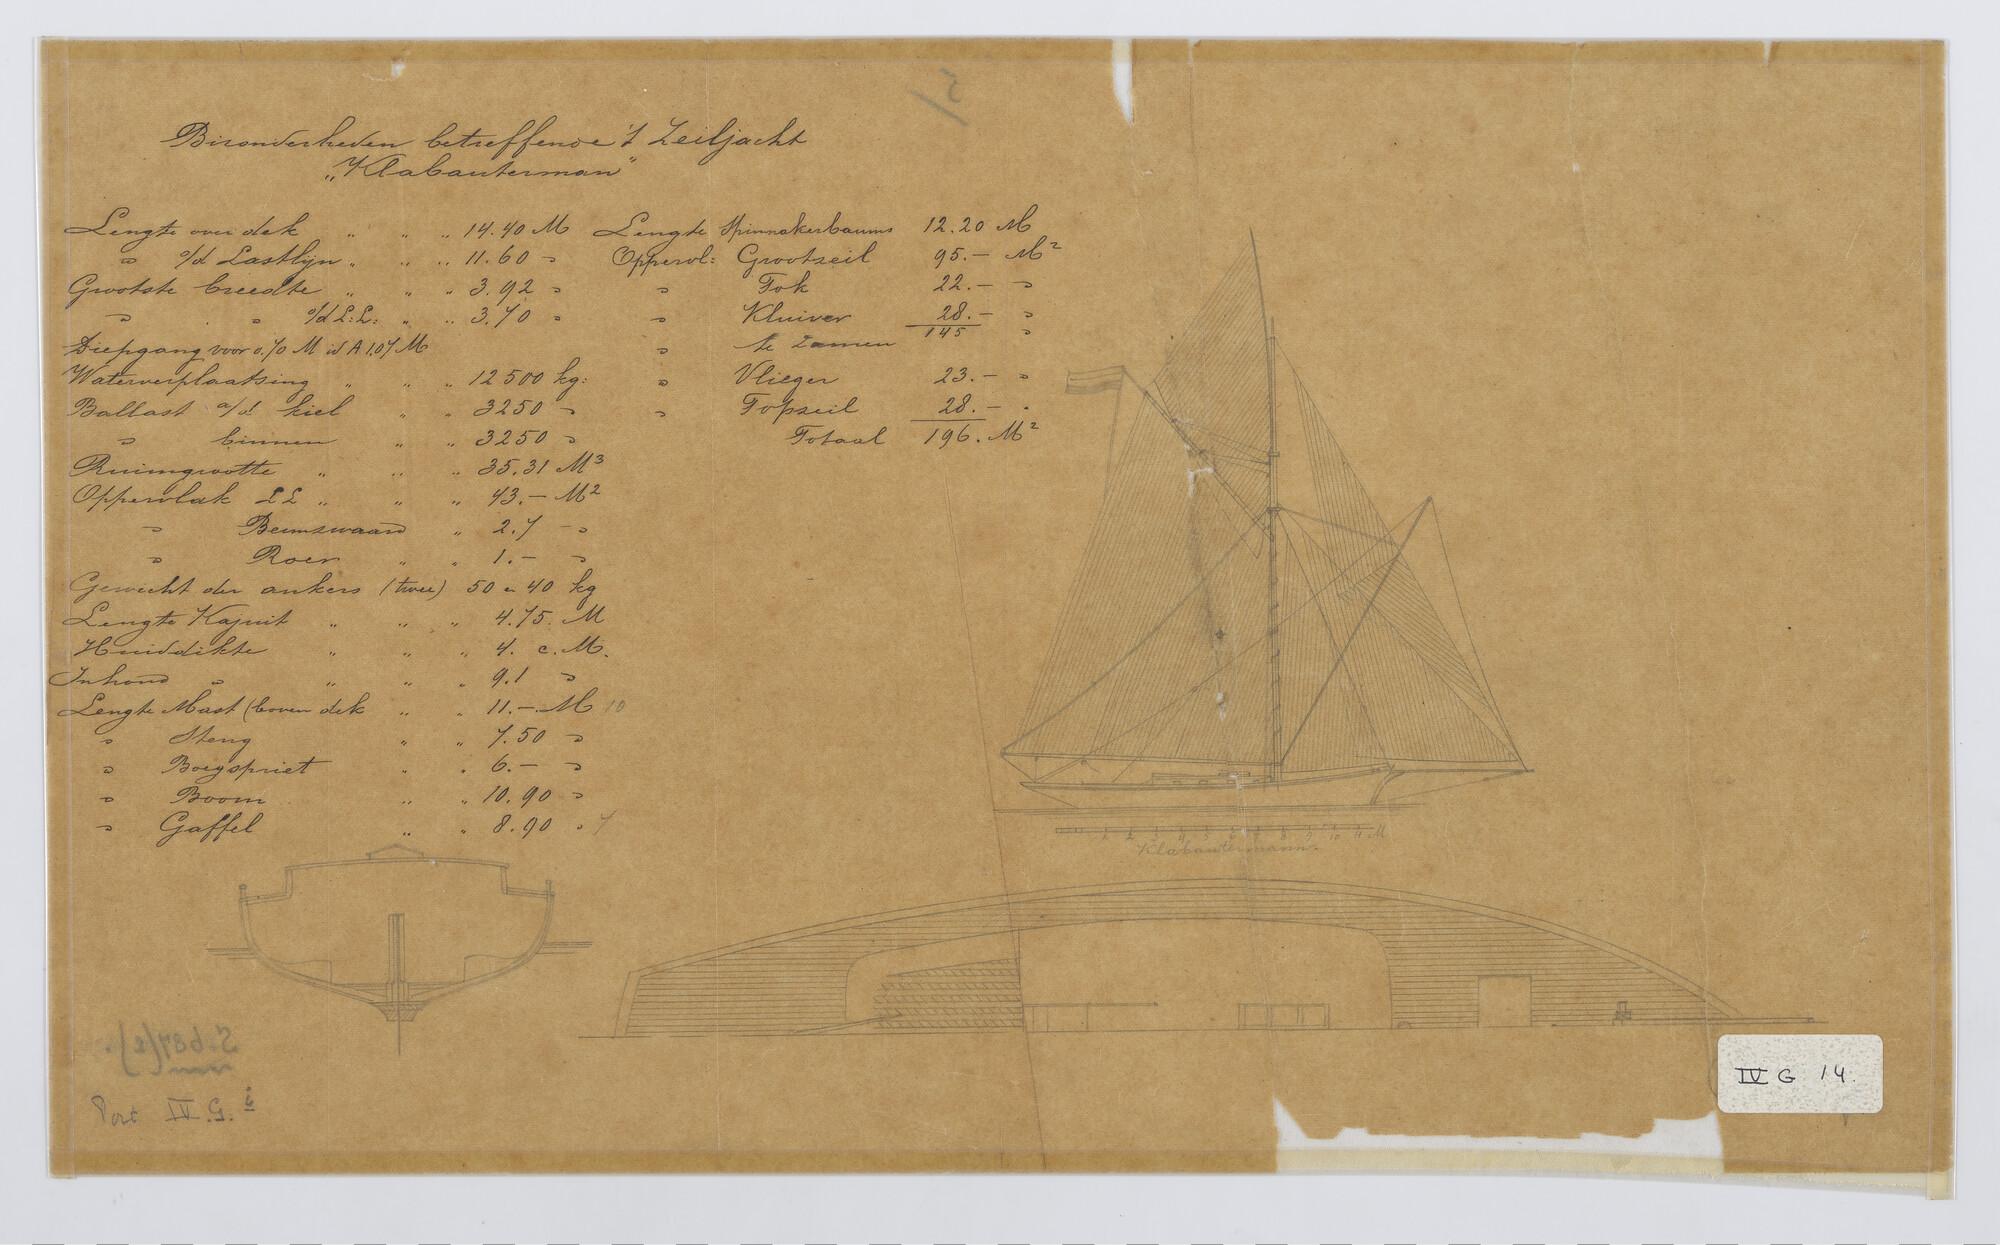 Bizonderheden betreffende 't Zeiljacht
„Klabauterman"
Lengte over dek „ „ „ 14.40 M
„ o/d Lastlijn „ „ „ 11.60 „
Grootste breedte „ „ „ 3.92 „
„ „ o/d L:L: „ „ 3.70 „
Diepgang voor 0.70 M id A 1.07 M
Waterverplaatsing „ „ „ 12500 kg:
Ballast a/d kiel „ „ 3250 „
„ binnen „ „ 3250 „
Ruimgrootte „ „ „ 35.31 M³
Oppervlak LL „ „ „ 43.— M²
„ „ 2.7 — „
„ Roer „ „ 1.— „
Gewicht der ankers (twee) 50 en 40 kg
Lengte Kajuit „ „ „ 4.75. M
Huiddikte „ „ „ 4. c.M.
Inhoud „ „ „ „ 9.1 „
Lengte Mast (boven dek „ „ 11.—M 10
„ Steng „ „ 7.50 „
„ Boegspriet „ „ 6.— „
„ Boom „ „ 10.90 „
„ Gaffel „ „ 8.90 „ 7
Lengte Spinnakerbooms 12.20 M
Oppervl: Grootzeil 95.— M²
„ Fok 22.— „
„ Kluiver 28.— „
„ te zamen 145 „
„ Vlieger 23.— „
„ Topzeil 28.— „
Totaal 196. M²
5
1 2 3 4 5 6 7 8 9 10 11 M
Klabautermann.
S.b87(2).
Port IV.G.
IV G 14.